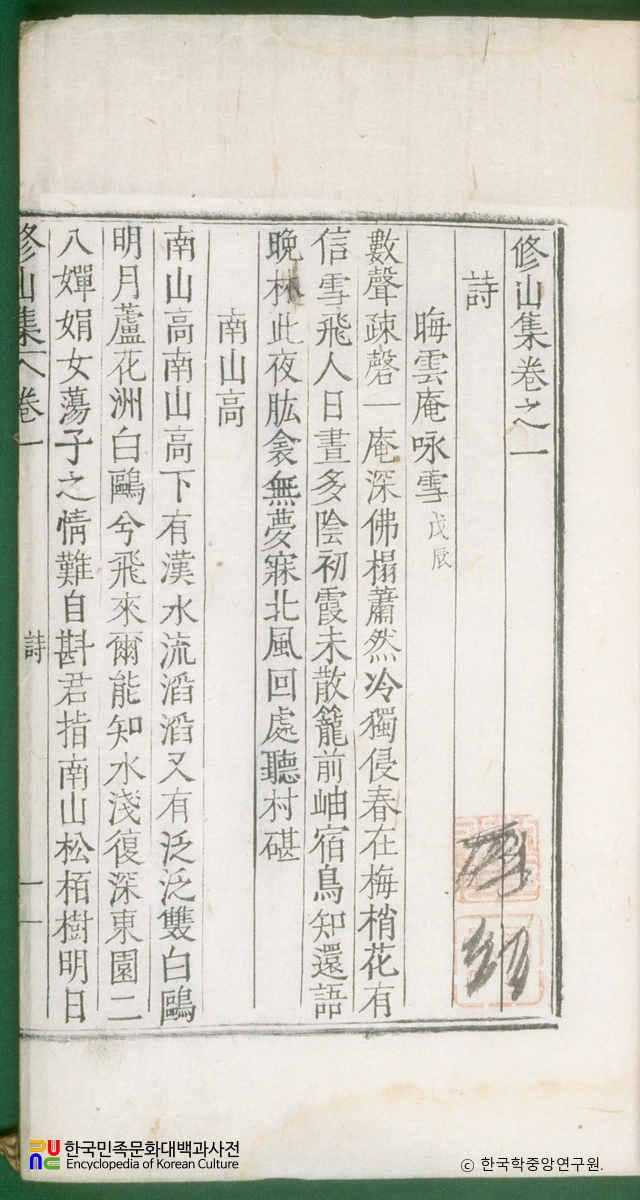 修山集卷之一
詩
晦雲庵咏雪 戊辰
數聲疎磬一庵深佛榻蕭然冷獨侵春在梅梢花有
信雪飛人日晝多陰初霞未散籠前岫宿鳥知還語
晩林此夜肱衾無夢寐北風回處聽村碪
南山高
南山高南山高下有漢水流滔滔又有泛泛雙白鷗
明月蘆花洲白鷗兮飛來爾能知水淺復深東園二
八嬋娟女蕩子之情難自斟君指南山松栢樹明日
修山集 卷一 詩 一
한국민족문화대백과사전
Encyclopedia of Korean Culture
© 한국학중앙연구원.